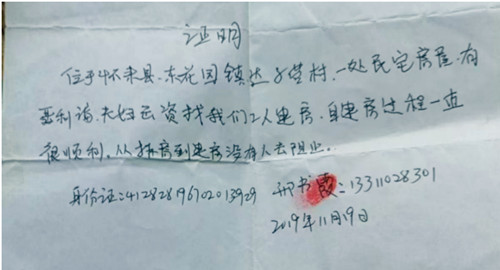 证明
位于怀来县.东花园镇达子营村.一处民宅房屋.有
利 夫妇 资找我们2人建房.自建房过程一直
很顺利.从拆房到建房没有人去阻止.
身份证:412828196702013929 邢书霞:13311028301
2019年11月19日